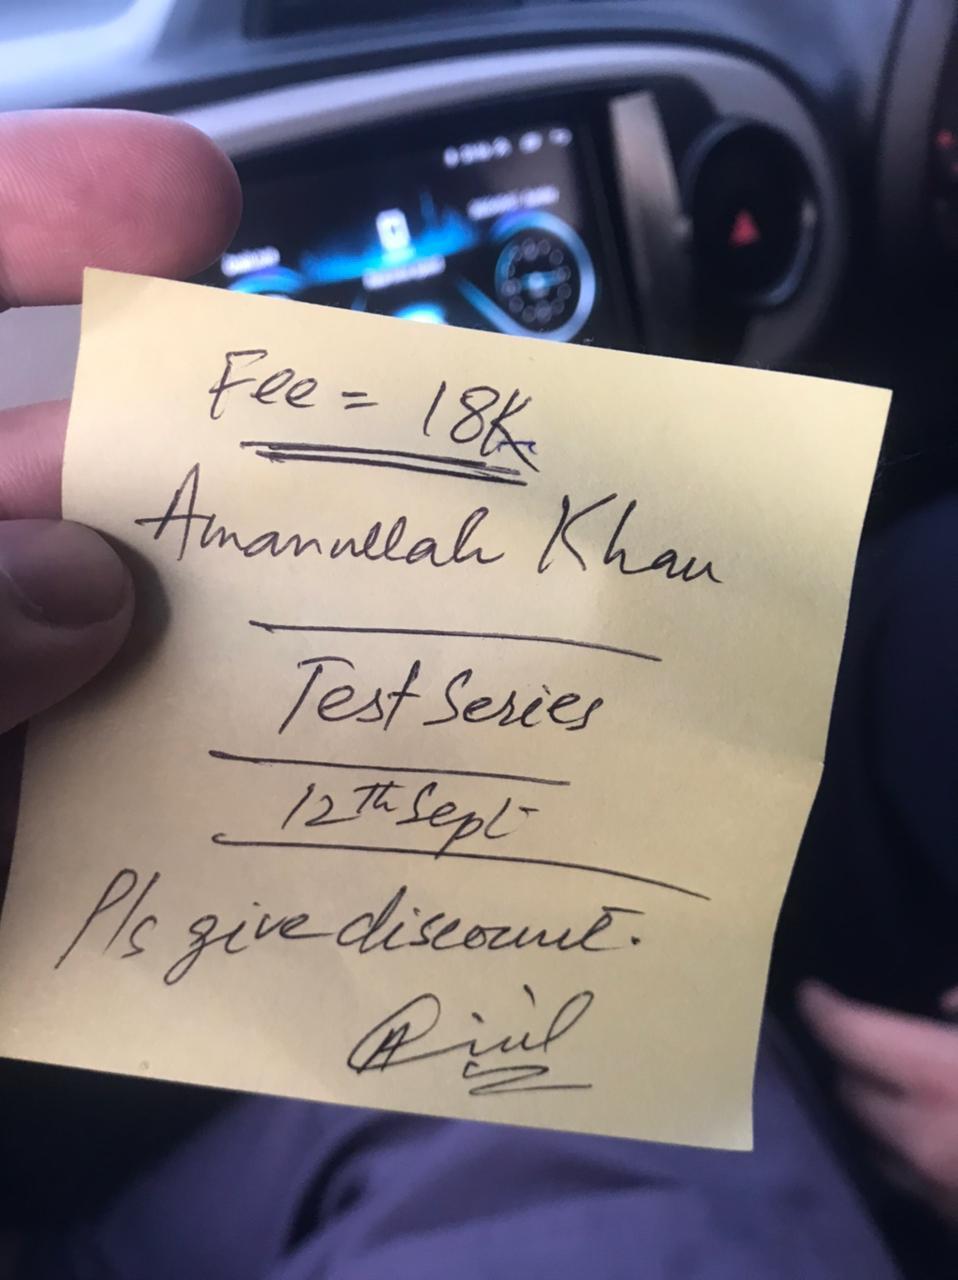 Fee = 18K
Amanullah Khan
Test Series
12th Sept
Pls give discount.